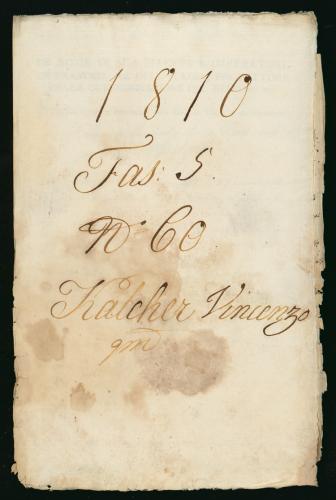 1810
Fas: 5.
N° 60
Kalcher Vincenzo
qm